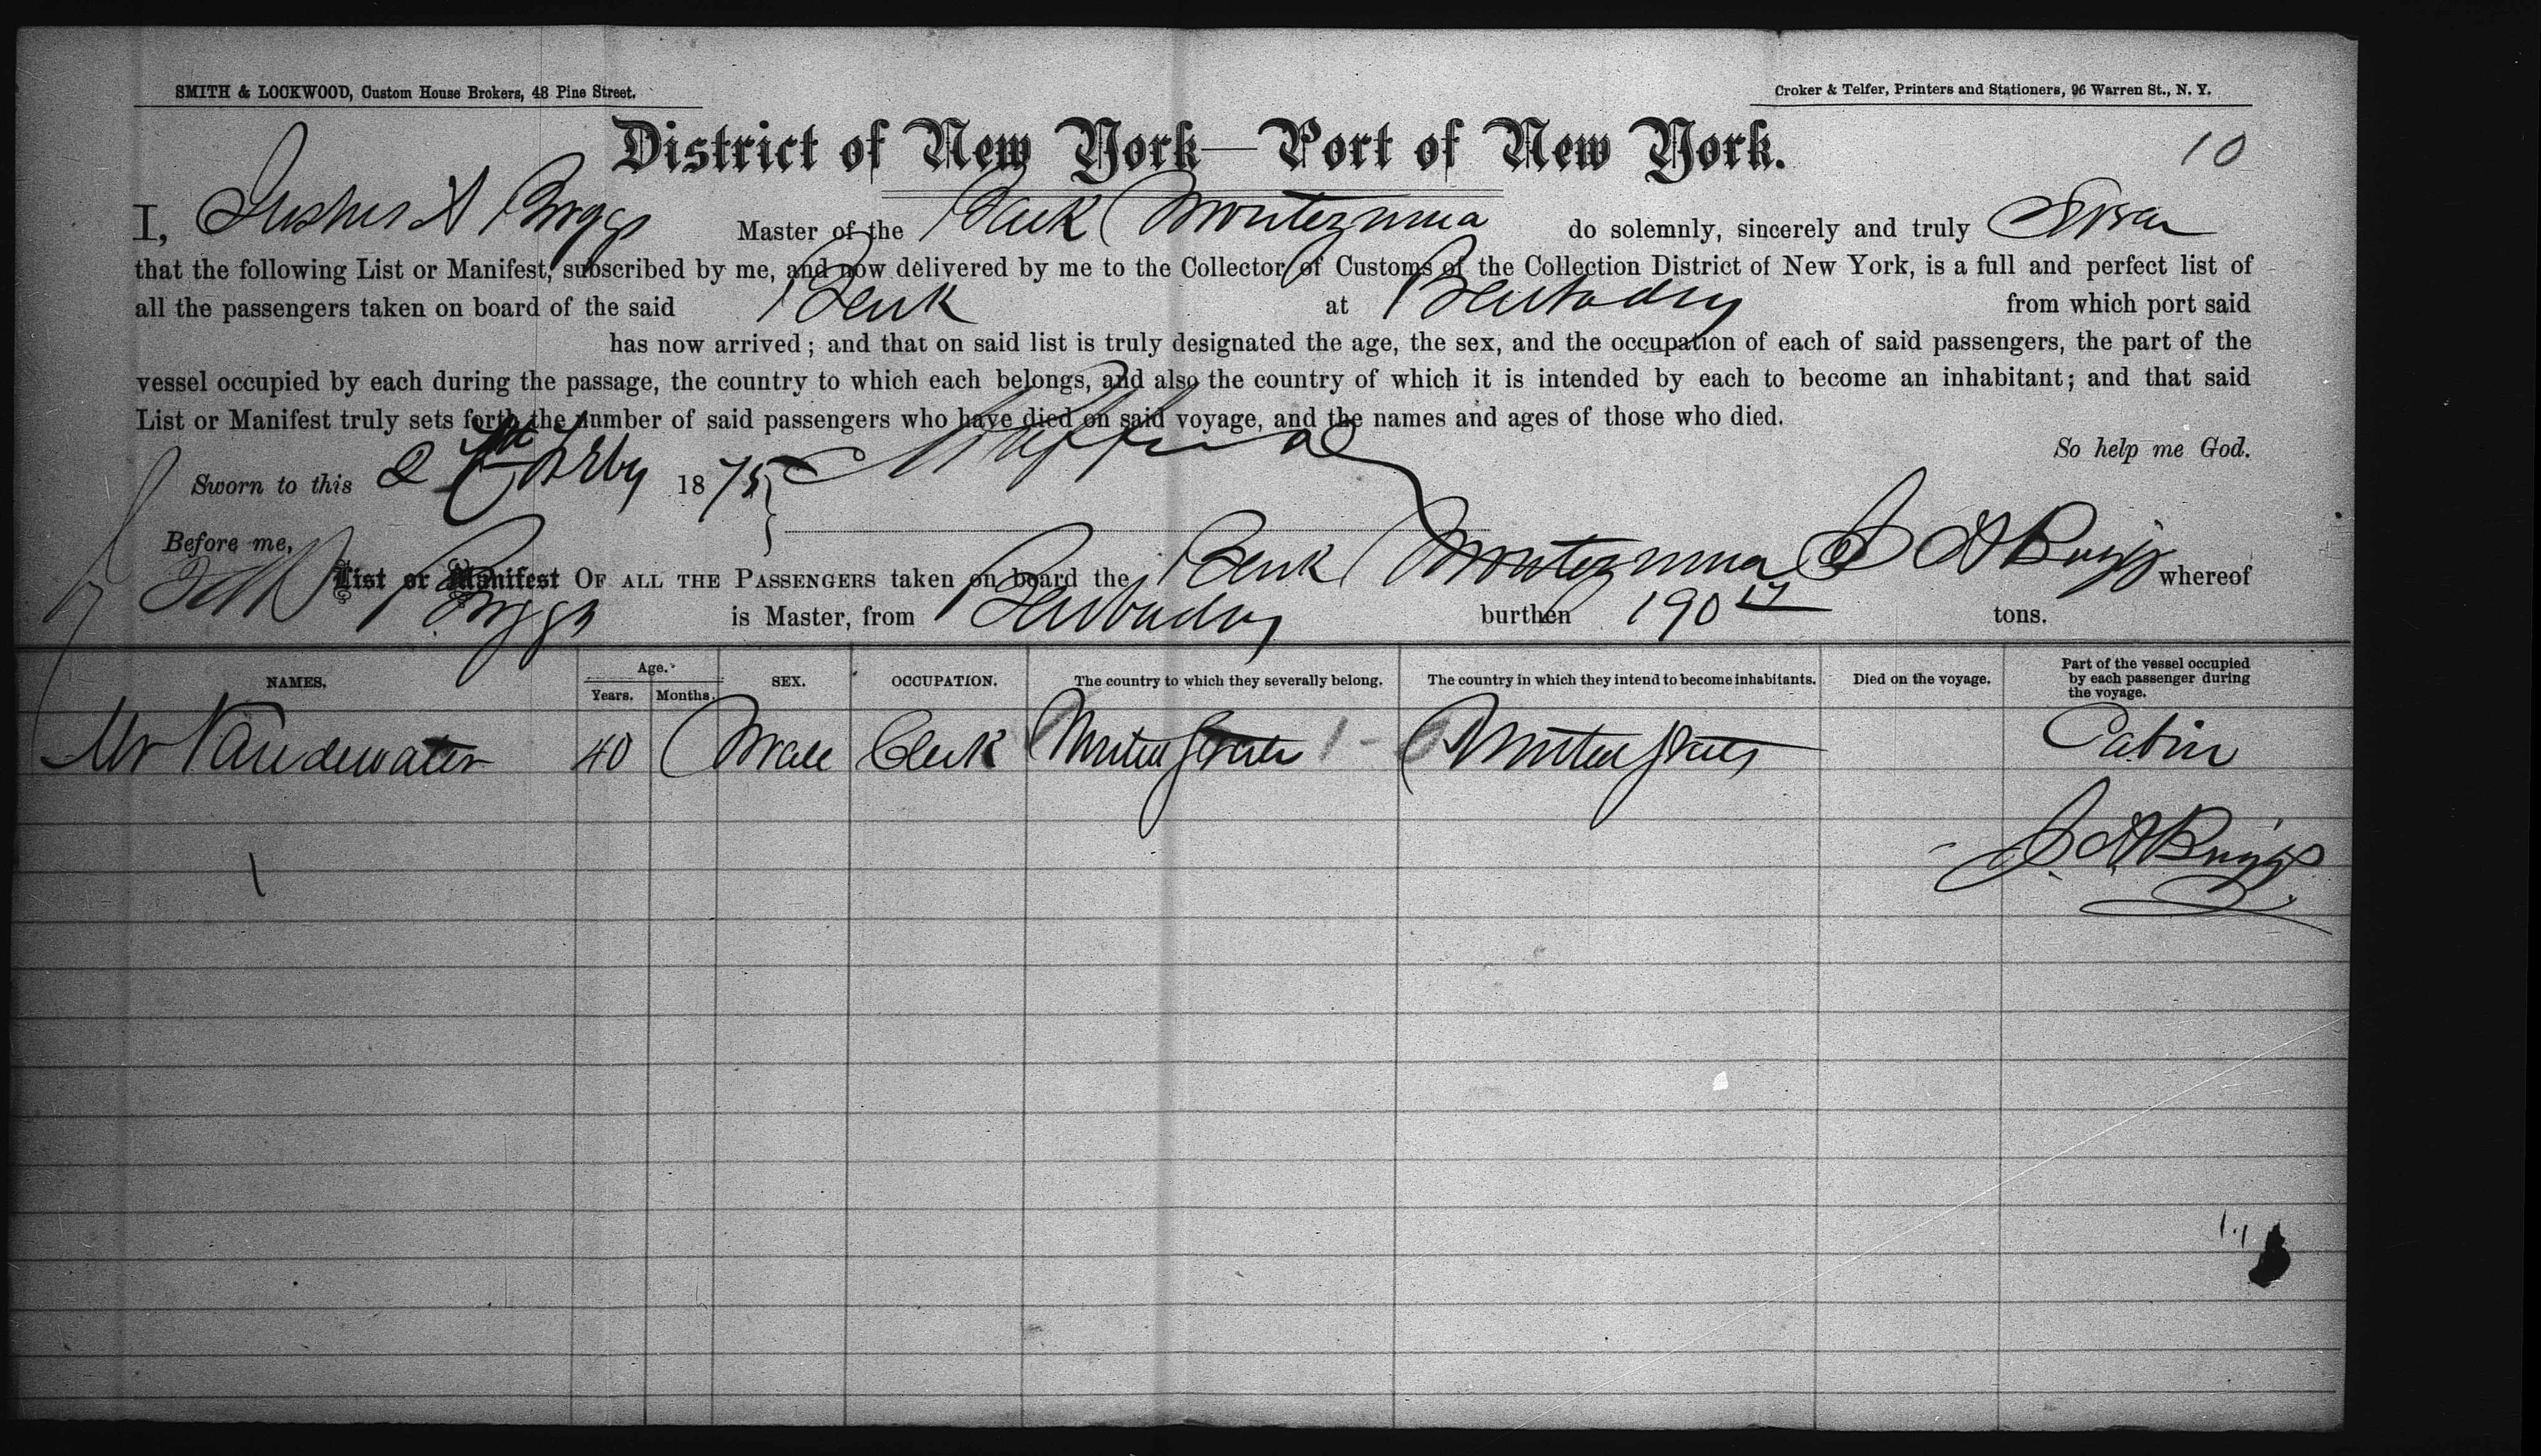 SMITH & LOCKWOOD, Custom House Brokers, 48 Pine Street.
Croker & Telfer, Printers and Stationers, 96 Warren St., N. Y.
District of New York—Port of New York.
10
I, A Briggs Master of the Bark Montezuma do solemnly, sincerely and truly Swear
that the following List or Manifest, subscribed by me, and now delivered by me to the Collector of Customs of the Collection District of New York, is a full and perfect list of
all the passengers taken on board of the said Bark at Barbadoes from which port said
has now arrived; and that on said list is truly designated the age, the sex, and the occupation of each of said passengers, the part of the
vessel occupied by each during the passage, the country to which each belongs, and also the country of which it is intended by each to become an inhabitant; and that said
List or Manifest truly sets forth the number of said passengers who have died on said voyage, and the names and ages of those who died.
So help me God.
Sworn to this 2 1875
Before me,
List or Manifest OF ALL THE PASSENGERS taken on board the Bark Montezuma J A Briggs whereof
Briggs is Master, from Barbadoes burthen 190 17 tons.
NAMES. Age. Years. Months. SEX. OCCUPATION. The country to which they severally belong. The country in which they intend to become inhabitants. Died on the voyage. Part of the vessel occupied by each passenger during the voyage.
Mr Vandewater 40 Male Clerk United States United States Cabin
J. A. Briggs